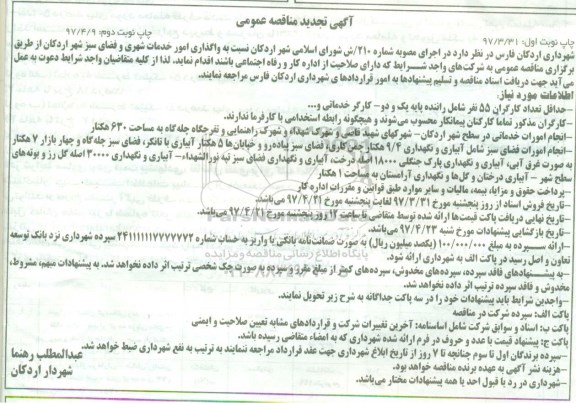 آگهی تجدید مناقصه عمومی
چاپ نوبت اول: ۹۷/۳/۳۱ چاپ نوبت دوم: ۹۷/۴/۹
شهرداری اردکان فارس در نظر دارد در اجرای مصوبه شماره ۲۱۰/ش شورای اسلامی شهر اردکان نسبت به واگذاری امور خدمات شهری و فضای سبز شهر اردکان از طریق
برگزاری مناقصه عمومی به شرکت‌های واجد شـــرایط که دارای صلاحیت از اداره کار و رفاه اجتماعی باشند اقدام نماید. لذا از کلیه متقاضیان واجد شرایط دعوت به عمل
می آید جهت دریافت اسناد مناقصه و تسلیم پیشنهادها به امور قراردادهای شهرداری اردکان فارس مراجعه نمایند.
اطلاعات مورد نیاز:
-حداقل تعداد کارگران ۵۵ نفر شامل راننده پایه یک و دو- کارگر خدماتی و...
-کارگران مذکور تماما کارکنان پیمانکار محسوب می‌شوند و هیچگونه رابطه استخدامی با کارفرما ندارند.
-انجام امورات خدماتی در سطح شهر اردکان- شهرکهای شهید قاضی و شهرک شهداء و شهرک راهنمایی و نفرجگاه چله‌گاه به مساحت ۶۳۰ هکتار
-انجام امورات فضای سبز شامل آبیاری و نگهداری ۹/۴ هکتار چمن‌کاری، فضای سبز پیاده‌رو و خیابان‌ها ۵ هکتار آبیاری با تانکر، فضای سبز چله‌گاه و چهار بازار ۷ هکتار
به صورت غرق آبی، آبیاری و نگهداری پارک جنگلی ۱۸۰۰۰ اصله درخت، آبیاری و نگهداری فضای سبز تپه نورالشهداء- آبیاری و نگهداری ۳۰۰۰۰ اصله گل رز و بوته‌های
سطح شهر - آبیاری درختان و گل‌ها و نگهداری آرامستان به مساحت ۱ هکتار
-پرداخت حقوق و مزایا، بیمه، مالیات و سایر موارد طبق قوانین و مقررات اداره کار
-تاریخ فروش اسناد از روز پنجشنبه مورخ ۹۷/۳/۳۱ لغایت پنجشنبه مورخ ۹۷/۴/۲۱ می‌باشد.
-تاریخ نهایی دریافت پاکت قیمت‌ها ارائه شده توسط متقاضی تا ساعت ۱۲ روز پنجشنبه مورخ ۹۷/۴/۲۱ می‌باشد.
-تاریخ بازگشایی پیشنهادات مورخ شنبه ۹۷/۴/۲۳ می‌باشد.
-ارائه ســپرده به مبلغ ۱۰۰/۰۰۰/۰۰۰ (یکصد میلیون ریال) به صورت ضمانت‌نامه بانکی یا واریز به حساب شماره سپرده شهرداری نزد بانک توسعه
تعاون و اصل رسید در پاکت الف به شهرداری ارائه شود.
-به پیشــنهادهای فاقد سپرده، سپرده‌های مخدوش، سپرده‌های کمتر از مبلغ مقرر و سپرده به صورت چک شخصی ترتیب اثر داده نخواهد شد. به پیشنهادات مبهم، مشروط،
مخدوش و فاقد سپرده ترتیب اثر داده نخواهد شد.
-واجدین شرایط باید پیشنهادات خود را در سه پاکت جداگانه به شرح زیر تحویل نمایند.
پاکت الف: سپرده شرکت در مناقصه
پاکت ب: اسناد و سوابق شرکت شامل اساسنامه: آخرین تغییرات شرکت و قراردادهای مشابه تعیین صلاحیت و ایمنی
پاکت ج: پیشنهاد قیمت با عدد و حروف در فرم ارائه شده شهرداری که به امضاء متقاضی رسیده باشد.
-سپرده برندگان اول تا سوم چنانچه تا ۷ روز از تاریخ ابلاغ شهرداری جهت عقد قرارداد مراجعه ننمایند به ترتیب به نفع شهرداری ضبط خواهد شد.
-هزینه نشر آگهی به عهده برنده مناقصه خواهد بود.
-شهرداری در رد یا قبول احد یا همه پیشنهادات مختار می‌باشد.
عبدالمطلب رهنما
شهردار اردکان
پایگاه اطلاع رسانی مناقصه و مزایده